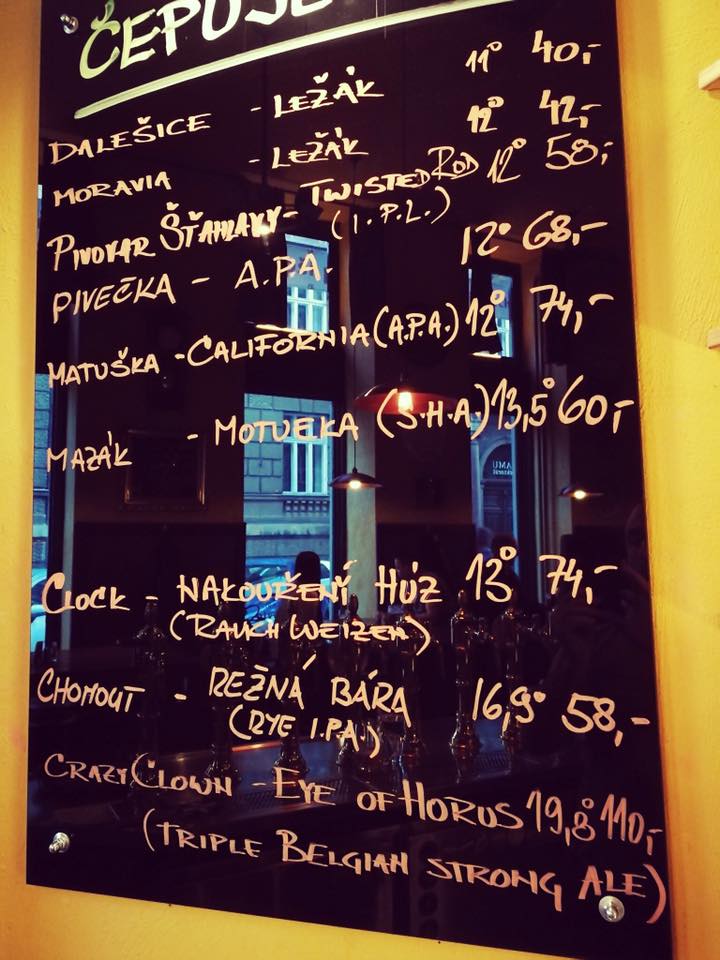 ČEPUJE
DALEŠICE - LEŽÁK 11° 40,-
MORAVIA - LEŽÁK 12° 42,-
PIVOVAR ŠŤAHLAVY - TWISTED ROD 12° 58,-
(I.P.L.)
PIVEČKA - A.P.A. 12° 68,-
MATUŠKA - CALIFORNIA (A.P.A.) 12° 74,-
MAZÁK - MOTUEKA (S.H.A.) 13,5° 60,-
CLOCK - NAKOUŘENÝ HÚZ 13° 74,-
(RAUCH WEIZEN)
CHOMOUT - REŽNÁ BÁRA 16,9° 58,-
(RYE I.P.A.)
CRAZY CLOWN - EYE OF HORUS 19,8° 110,-
(TRIPLE BELGIAN STRONG ALE)